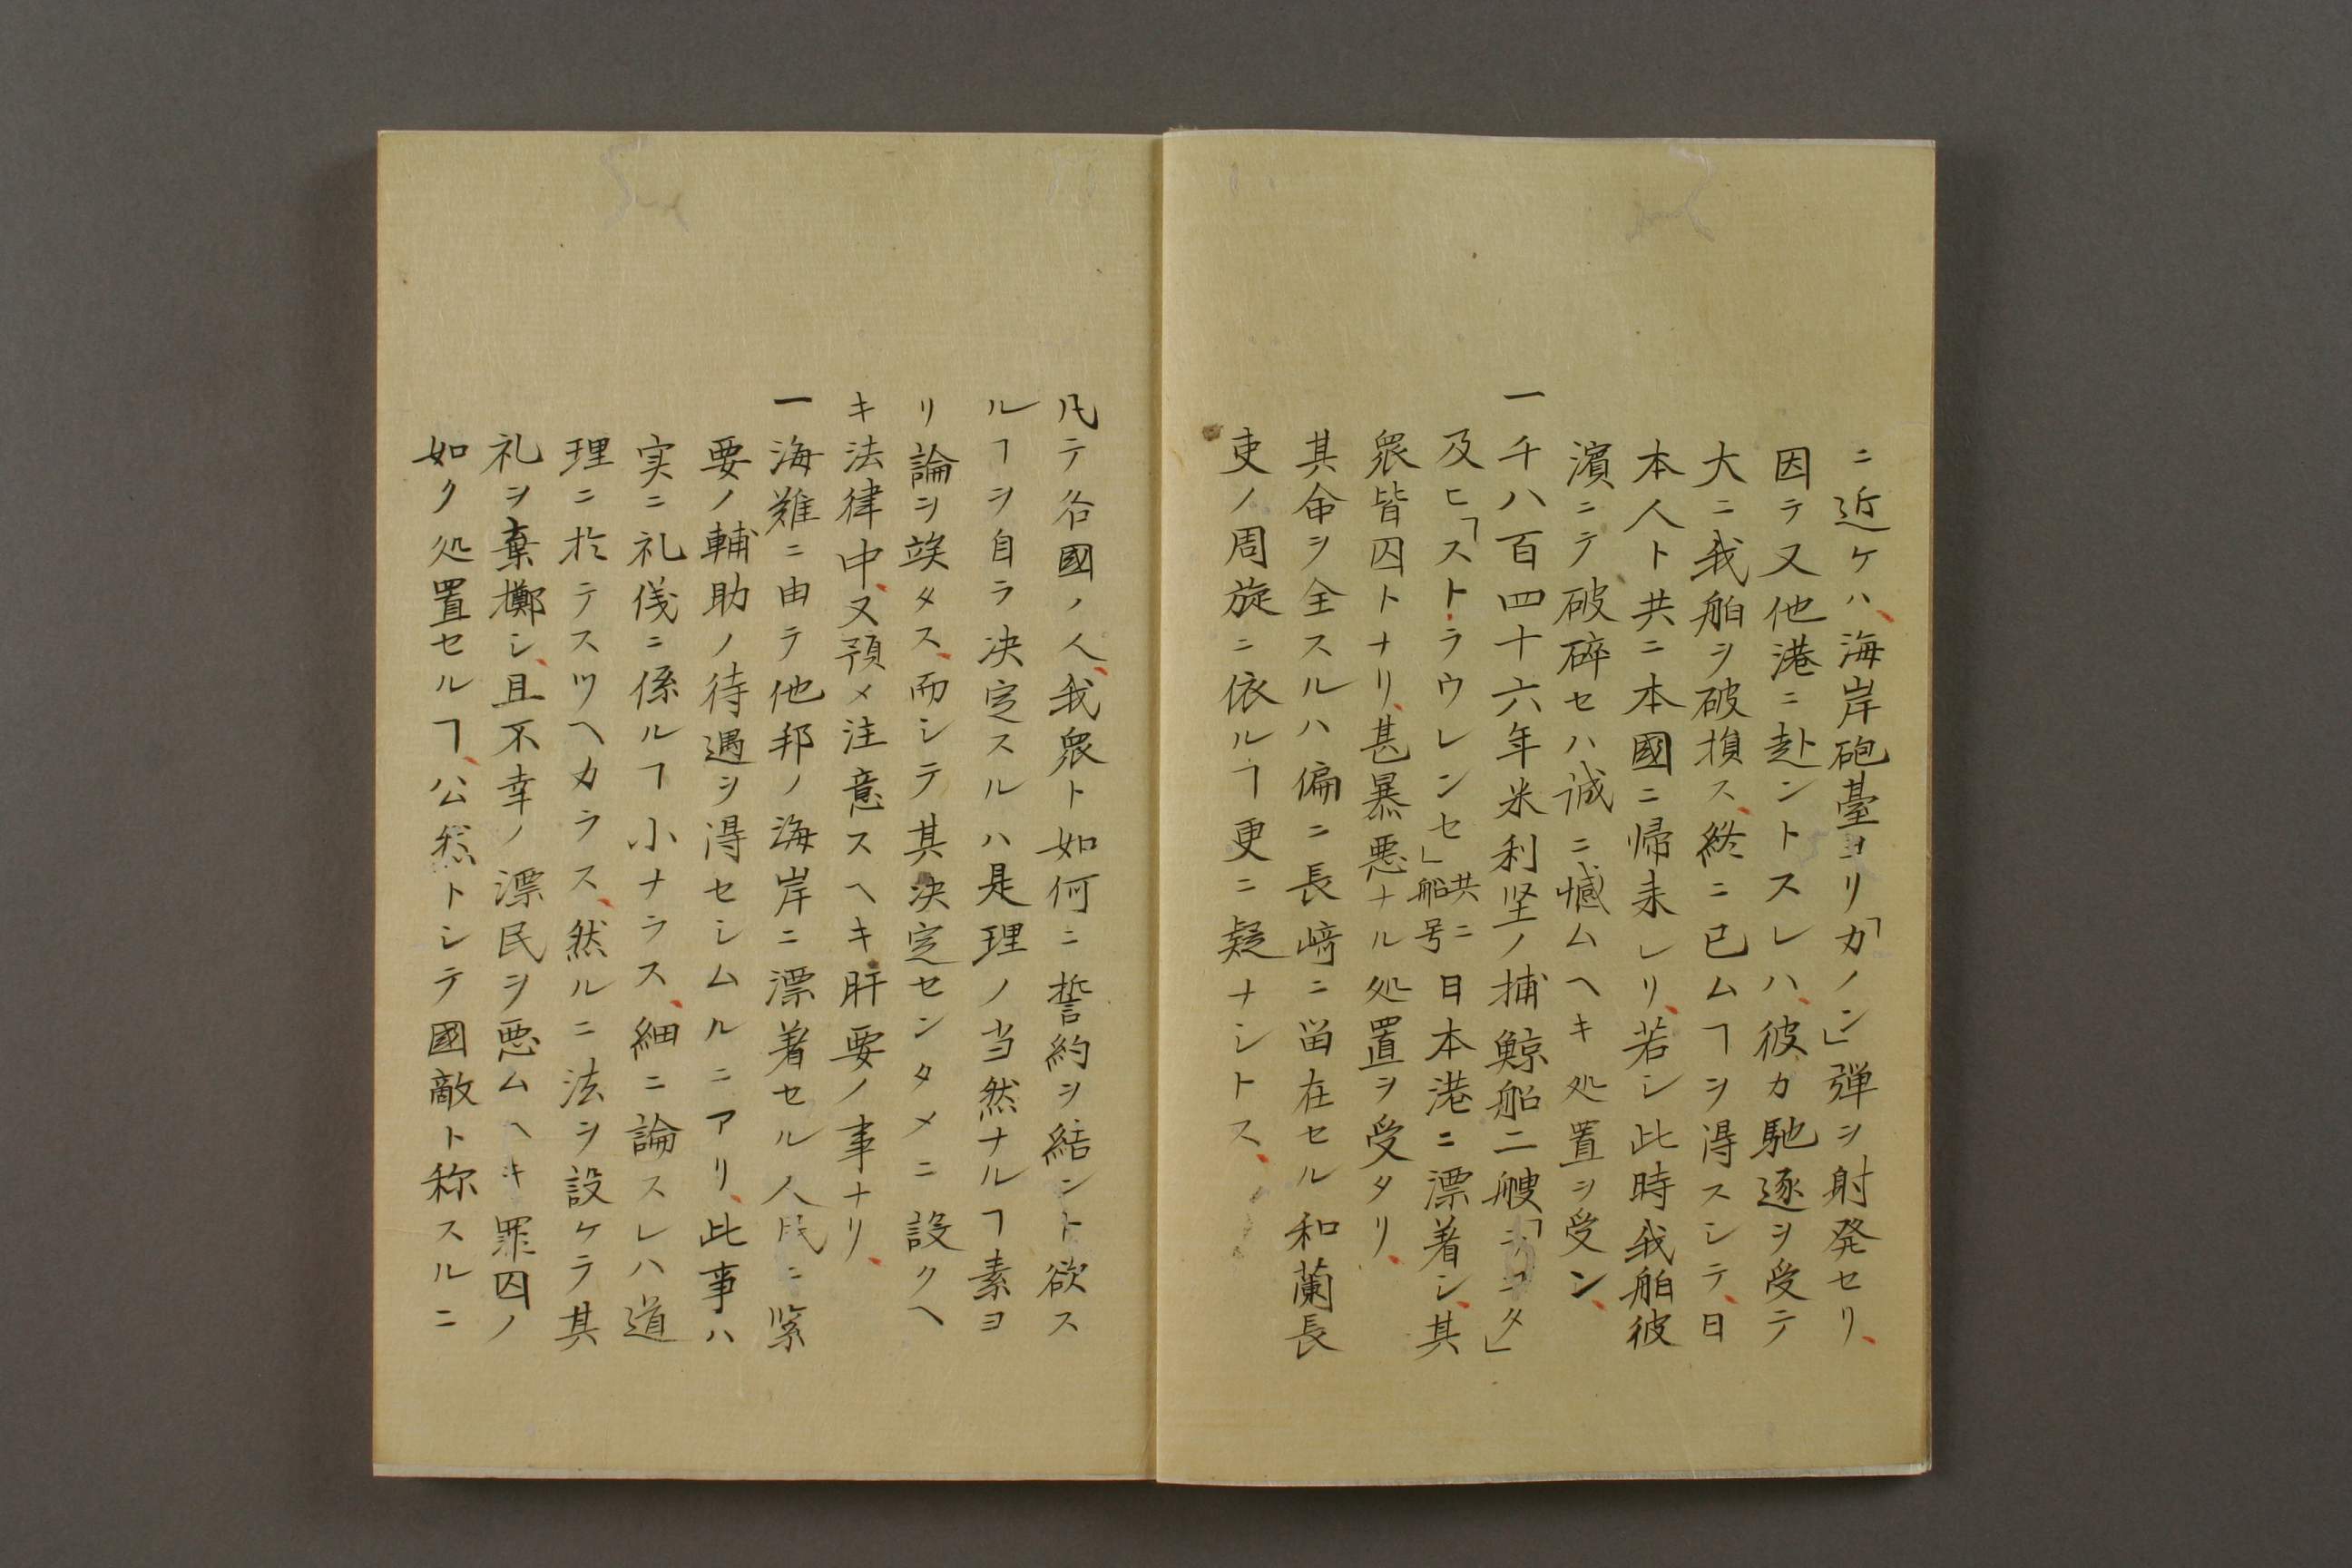 ニ近ケハ、海岸砲臺ヨリ「カノン」弾ヲ射発セリ、
因テ又他港ニ赴ントスレハ、彼カ馳逐ヲ受テ
大ニ我舶ヲ破損ス、終ニ已ムヿヲ得スシテ、日
本人ト共ニ本國ニ帰来レリ、若シ此時我舶彼
濱ニテ破碎セハ誠ニ憾ムヘキ処置ヲ受ン、
一千八百四十六年米利堅ノ捕鯨船二艘「ニコタ」
及ヒ「ストラウレンセ」共ニ船号日本港ニ漂着シ、其
衆皆囚トナリ、甚暴悪ナル処置ヲ受タリ、
其命ヲ全スルハ偏ニ長﨑ニ留在セル和蘭長
吏ノ周旋ニ依ルヿ更ニ疑ナシトス、
凡テ各國ノ人、我衆ト如何ニ誓約ヲ結ント欲ス
ルヿヲ自ラ决定スルハ是理ノ当然ナルヿ素ヨ
リ論ヲ竢タス、而シテ其决定センタメニ設クヘ
キ法律中、又預メ注意スヘキ肝要ノ事ナリ、
一海難ニ由テ他邦ノ海岸ニ漂着セル人民ニ緊
要ノ輔助ノ待遇ヲ得セシムルニアリ、此事ハ
実ニ礼儀ニ係ルヿ小ナラス、細ニ論スレハ道
理ニ於テスツヘカラス、然ルニ法ヲ設ケテ其
礼ヲ棄擲シ、且不幸ノ漂民ヲ悪ムヘキ罪囚ノ
如ク処置セルヿ、公然トシテ國敵ト称スルニ